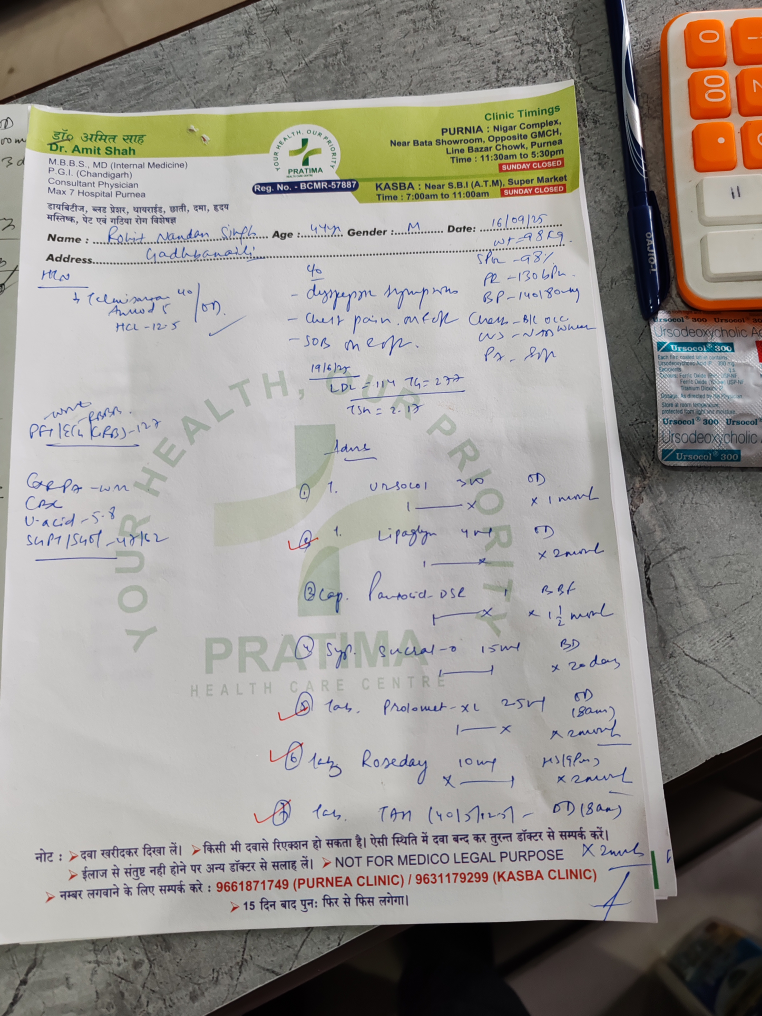 डॉ० अमित साह
Dr. Amit Shah
M.B.B.S., MD (Internal Medicine)
P.G.I. (Chandigarh)
Consultant Physician
Max 7 Hospital Purnea
डायबिटीज, ब्लड प्रेशर, थायराईड, छाती, दमा, हृदय
मस्तिष्क, पेट एवं गठिया रोग विशेषज्ञ
YOUR HEALTH, OUR PRIORITY
PRATIMA
HEALTH CARE CENTRE
Reg. No. - BCMR-57887
Clinic Timings
PURNIA : Nigar Complex,
Near Bata Showroom, Opposite GMCH,
Line Bazar Chowk, Purnea
Time : 11:30am to 5:30pm
SUNDAY CLOSED
KASBA : Near S.B.I (A.T.M), Super Market
Time : 7:00am to 11:00am SUNDAY CLOSED
Name : Rohit Nandan Singh Age : 44yrs Gender : M Date: 16/09/25
Address
Wt = 98 Kg
SPO2 - 98%
PR - 130 bpm
BP - 140/80 mmHg
HTN
Telmisartan 40
Amlod 5 / OD.
HCL - 12.5
- dyspepsia symptoms
- Chest pain
- SOB
19/6/25
LDL = 114 TG = 277
TSH = 2.17
PFT/ECG/(RBS) - 127
CBC
U-acid - 5.8
SGPT/SGOT - 47/62
Advs
① T. Ursocol 300 OD
x 1 month
② T. Lipaglyn 4mg OD
x 2 month
③ Cap. Pantocid-DSR 1 BBF
x 1 1/2 month
④ Syp. Sucral-O 15ml BD
x 20 days
⑤ Tab. Prolomet-XL 25mg OD (8am)
x 2 month
⑥ Tab. Roseday 10mg HS (9pm)
x 2 month
⑦ Tab. TAH (40/5/12.5) - OD (8am)
x 2 month
YOUR HEALTH, OUR PRIORITY
PRATIMA
HEALTH CARE CENTRE
नोट : दवा खरीदकर दिखा लें। किसी भी दवासे रिएक्शन हो सकता है। ऐसी स्थिति में दवा बन्द कर तुरन्त डॉक्टर से सम्पर्क करें।
ईलाज से संतुष्ट नही होने पर अन्य डॉक्टर से सलाह लें। NOT FOR MEDICO LEGAL PURPOSE
नम्बर लगवाने के लिए सम्पर्क करे : 9661871749 (PURNEA CLINIC) / 9631179299 (KASBA CLINIC)
15 दिन बाद पुनः फिर से फिस लगेगा।
0
00
Ursocol® 300
Ursodeoxycholic
Ursocol® 300
Ursocol® 300 Ursocol
Ursodeoxycholic
Ursocol® 300